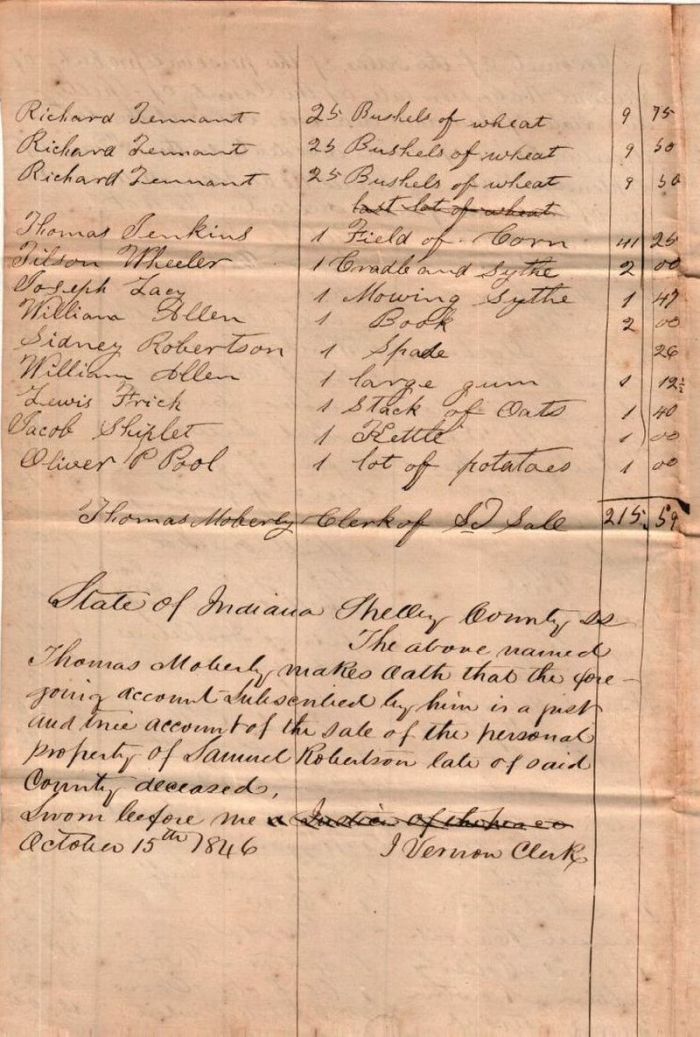 Richard Tennant 25 Bushels of wheat 9 75
Richard Tennant 25 Bushels of wheat 9 50
Richard Tennant 25 Bushels of wheat 9 50
last lot of wheat
Thomas Jenkins 1 Field of Corn 41 25
Tilson Wheeler 1 Cradle and Sythe 2 00
Joseph Lacy 1 Mowing Sythe 1 47
William Allen 1 Book 2 00
Sidney Robertson 1 Spade 26
William Allen 1 large gum 1 12½
Lewis Frick 1 Stack of Oats 1 40
Jacob Shiplet 1 Kettle 1 00
Oliver P Pool 1 lot of potatoes 1 00
Thomas Moberly Clerk of Sd Sale 215.59
State of Indiana Shelby County SS
The above named
Thomas Moberly makes Oath that the fore-
going account Subscribed by him is a just
and true account of the sale of the personal
property of Samuel Robertson late of said
County deceased,
Sworn before me a Justice of the peace
October 15th 1846 J Vernon Clerk